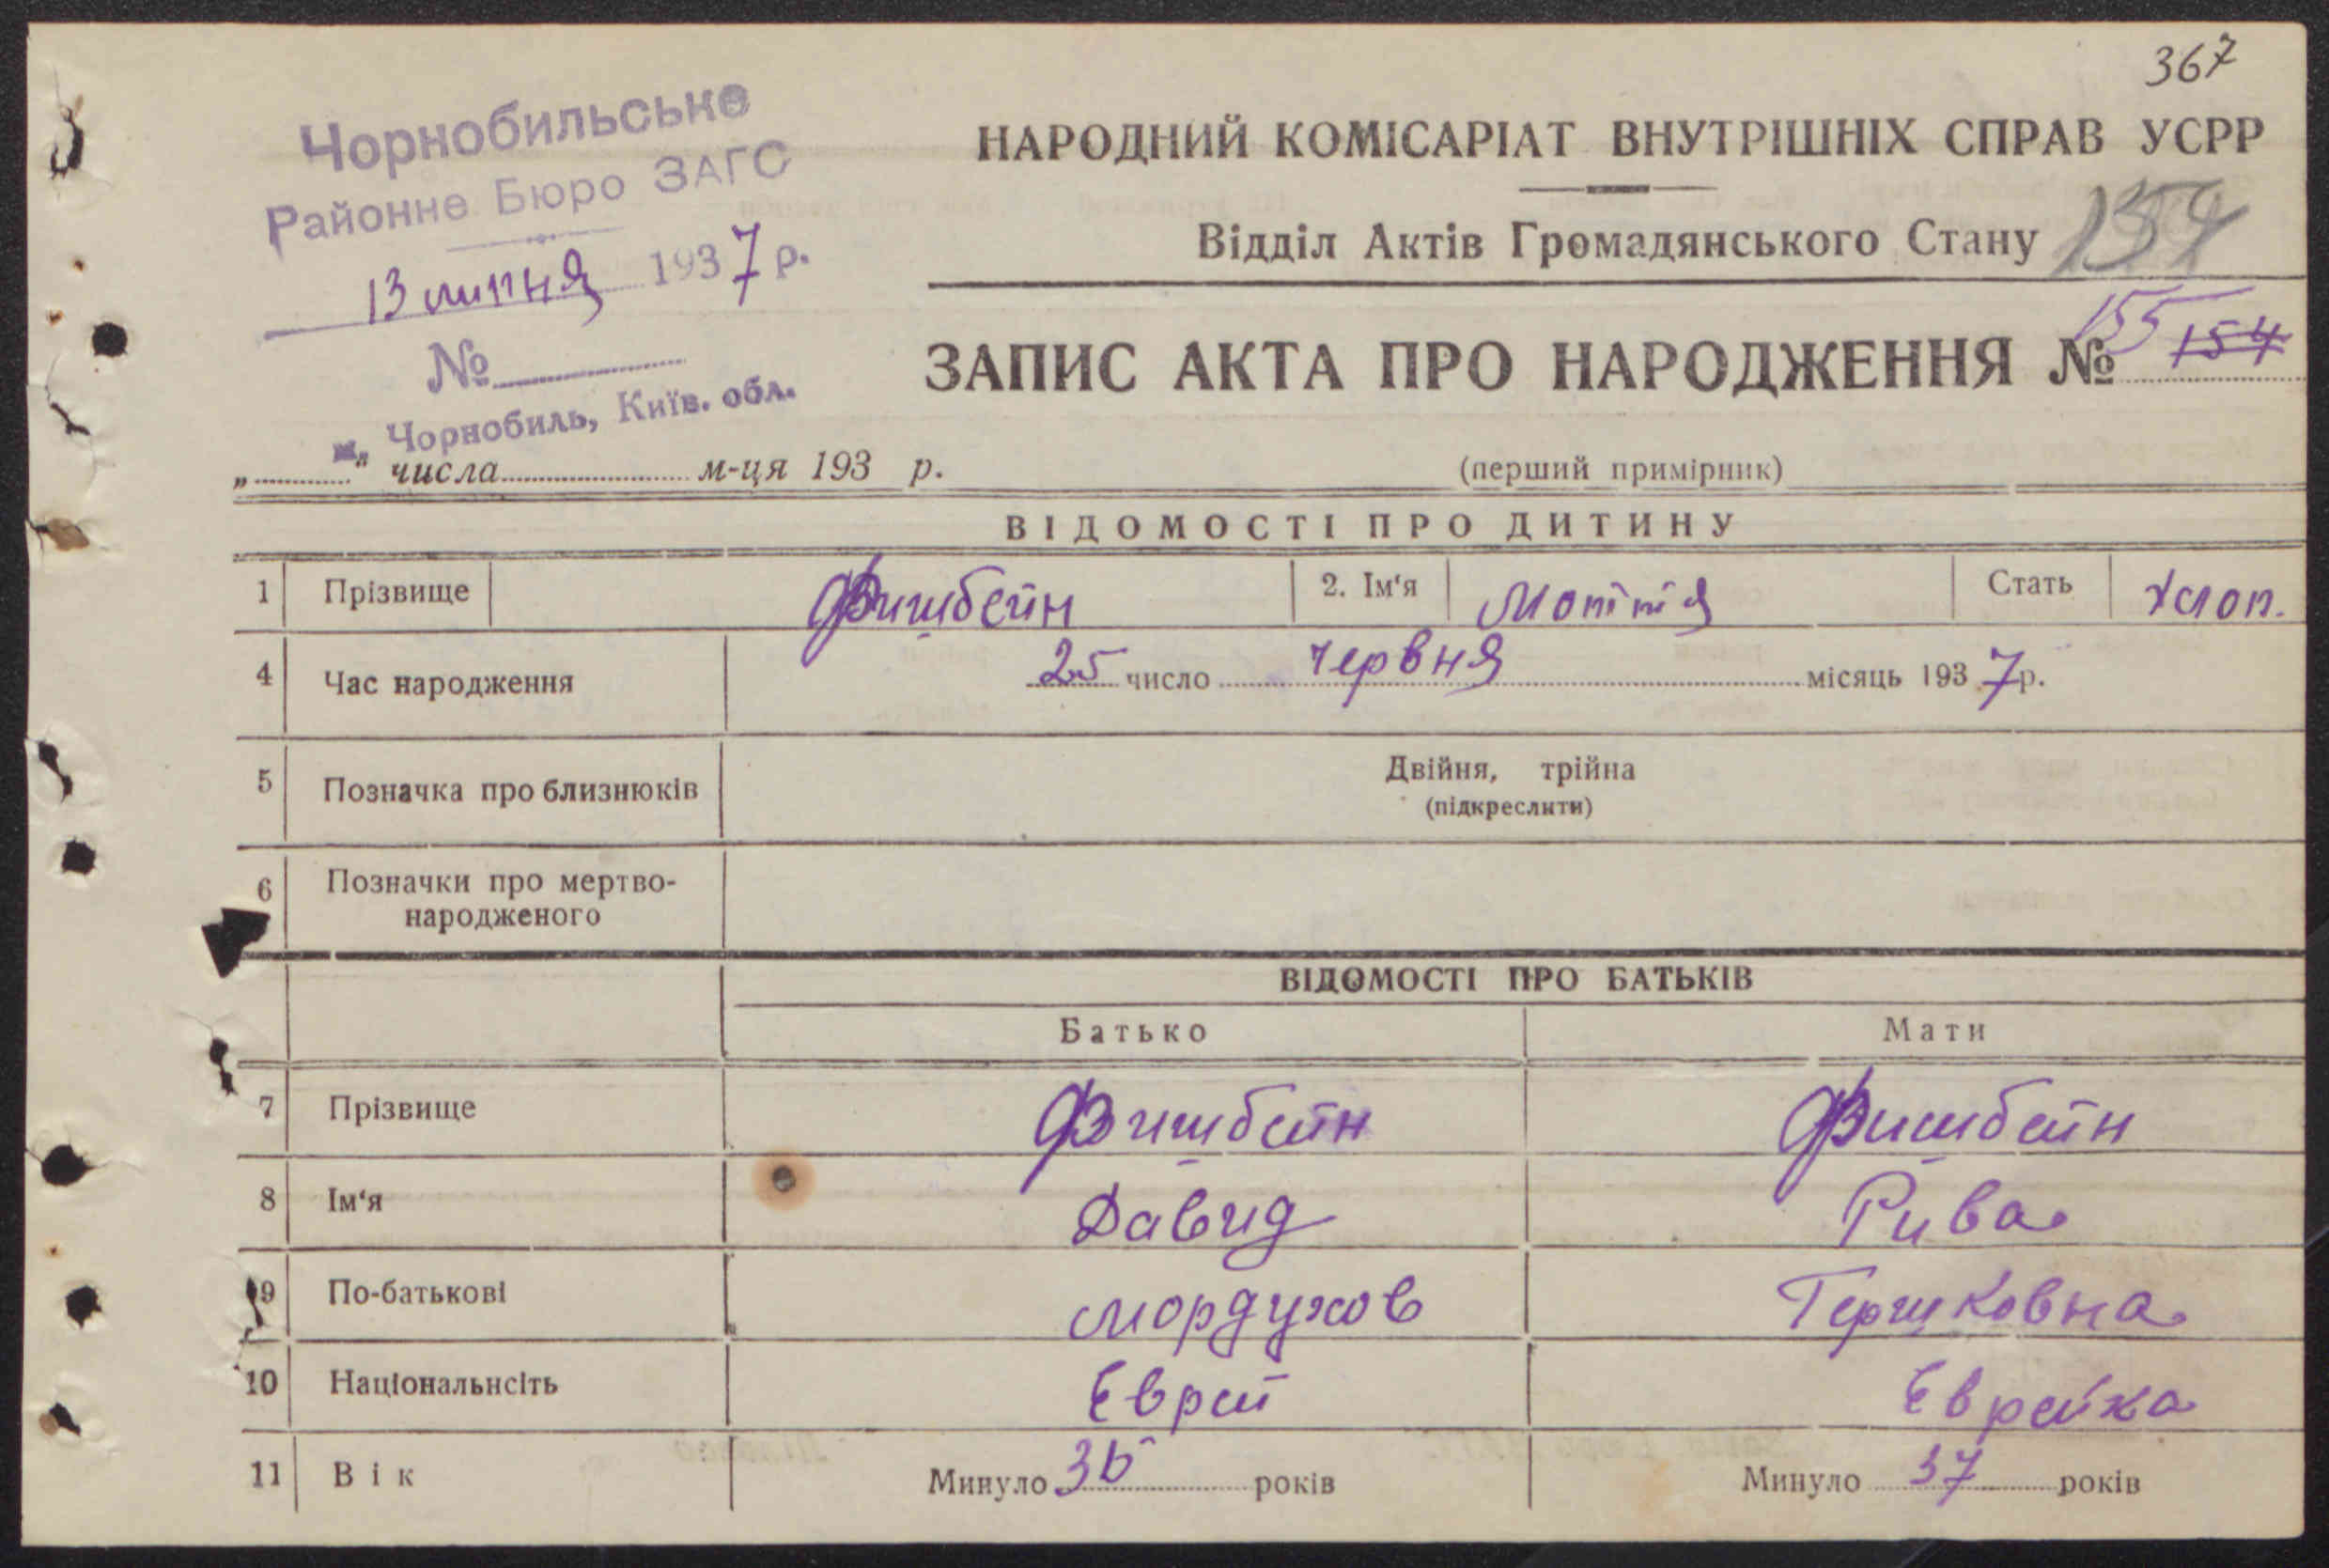 367
Чорнобильське
Районне Бюро ЗАГС
13 липня 1937 р.
№
м. Чорнобиль, Київ. обл.
„ “ числа м-ця 193 р.
НАРОДНИЙ КОМІСАРІАТ ВНУТРІШНІХ СПРАВ УСРР
Відділ Актів Громадянського Стану
ЗАПИС АКТА ПРО НАРОДЖЕННЯ № 155 154
(перший примірник)
ВІДОМОСТІ ПРО ДИТИНУ
1 Прізвище Фишбейн 2. Ім‘я Мотля Стать Хлоп.
4 Час народження 25 число червня місяць 1937 р.
5 Позначка про близнюків Двійня, трійна
(підкреслити)
6 Позначки про мертво-
народженого
ВІДОМОСТІ ПРО БАТЬКІВ
Батько Мати
7 Прізвище Фишбейн Фишбейн
8 Ім‘я Давид Рива
9 По-батькові Мордухов Гершковна
10 Національнсіть Еврей Еврейка
11 Вік Минуло років Минуло 37 років